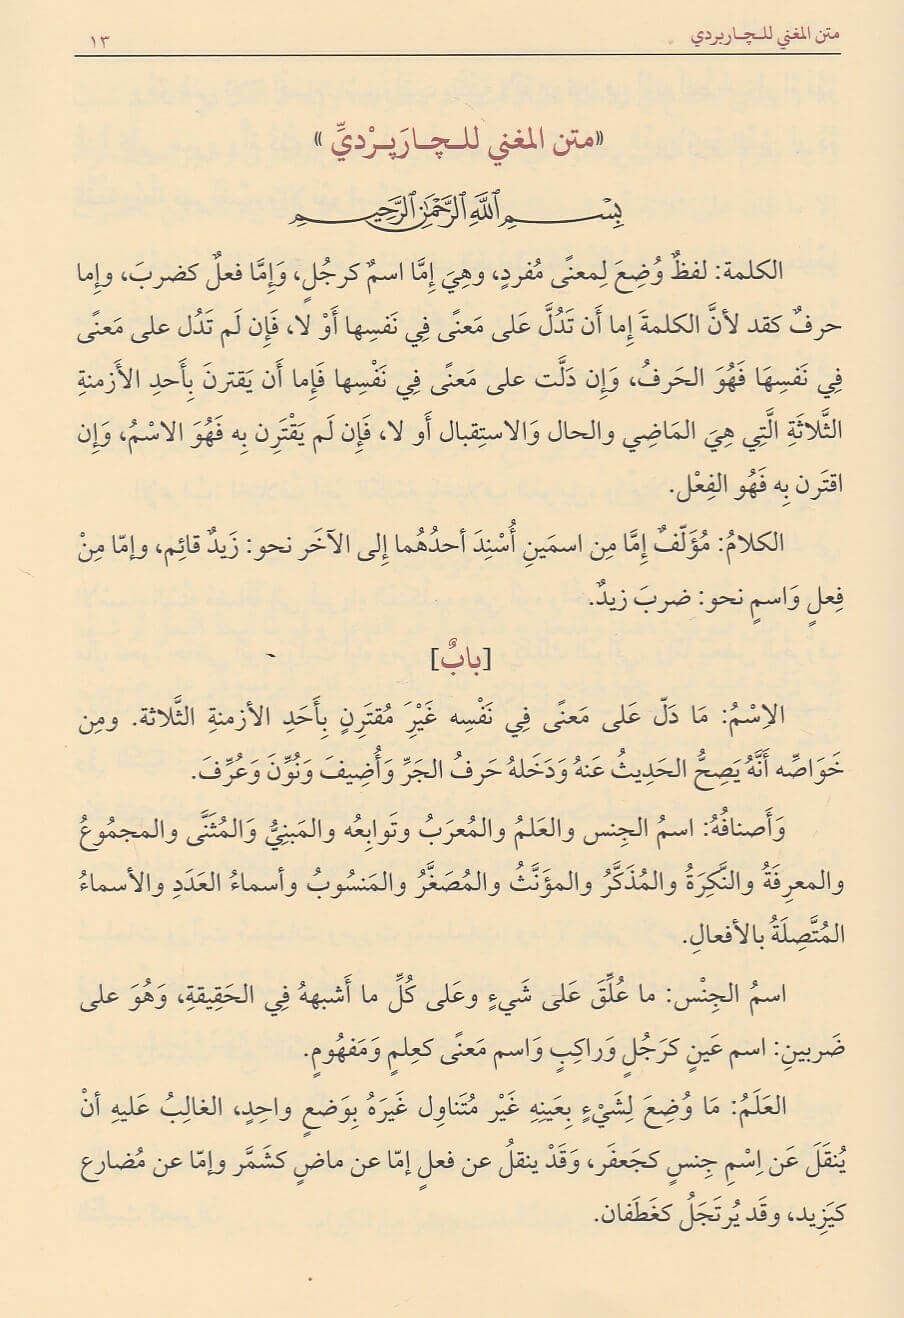 متن المغني للـچـاربردي
١٣
«متن المغني للـچـارَپـرْديِّ»
بِسْمِ ٱللَّهِ ٱلرَّحْمَٰنِ ٱلرَّحِيمِ
الكلمة: لفظٌ وُضِعَ لِمعنًى مُفردٍ، وهِيَ إمَّا اسمٌ كرجُلٍ، وَإِمَّا فعلٌ كضربَ، وإما
حرفٌ كقد لأنَّ الكلمةَ إما أن تَدُلَّ عَلى مَعنًى فِي نَفسِها أَوْ لا، فَإِن لَم تَدُل على مَعنًى
فِي نَفسِهَا فَهُوَ الحَرفُ، وَإِن دَلَّت على مَعنًى فِي نَفْسِها فَإِما أن يَقترنَ بِأَحدِ الأَزمنةِ
الثَّلاثَةِ الَّتِي هِيَ المَاضِي والحال وَالاستِقبال أَو لا، فَإِن لَم يَقْتَرِن بِه فَهُوَ الاسْمُ، وَإِن
اقتَرن بِه فَهُو الفِعْل.
الكلامُ: مُؤَلّفٌ إمَّا مِن اسمَينِ أُسْنِدَ أحدُهُما إلى الآخَر نحو: زَيدٌ قائِم، وإمّا مِنْ
فِعلٍ وَاسمٍ نحو: ضربَ زيدٌ.
[بابٌ]
الاِسْمُ: مَا دَلّ عَلى مَعنًى فِي نَفْسِه غَيْرَ مُقتَرِنٍ بِأَحَدِ الأزمنةِ الثَّلاثة. ومِن
خَوَاصِّه أَنَّهُ يَصِحُّ الحَدِيثُ عَنهُ وَدَخَلهُ حَرفُ الجَرِّ وَأُضِيفَ وَنُوِّنَ وَعُرِّفَ.
وَأَصنافُهُ: اسمُ الجِنس والعَلمُ والمُعرَبُ وتَوابِعُه والمَبنِيُّ وَالمُثنَّى والمجمُوعُ
والمعرِفَةُ والنَّكِرَةُ والمُذَكَّرُ والمؤَنَّثُ والمُصَغَّرُ والمَنسُوبُ وأسماءُ العَدَدِ والأسماءُ
المُتَّصِلَةُ بالأفعالِ.
اسمُ الجِنْس: ما عُلِّقَ عَلى شَيءٍ وعَلى كُلِّ ما أَشبههُ فِي الحَقِيقةِ، وَهُوَ على
ضَربينِ: اسم عَينٍ كرَجُلٍ وَراكِبٍ وَاسم مَعنًى كعِلمٍ وَمَفهُومٍ.
العَلَمُ: مَا وُضِعَ لِشَيْءٍ بِعَينِهِ غَيْر مُتَناوِل غَيْرَهُ بِوَضعٍ واحِدٍ، الغالِبُ عَليهِ أنْ
يُنقَلَ عَن اِسْمِ جِنسٍ كجَعفَر، وَقَدْ ينقلُ عن فعلٍ إمّا عن ماضٍ كشَمَّر وإمّا عن مُضارع
كيَزِيد، وقَد يُرتَجَلُ كغَطَفان.